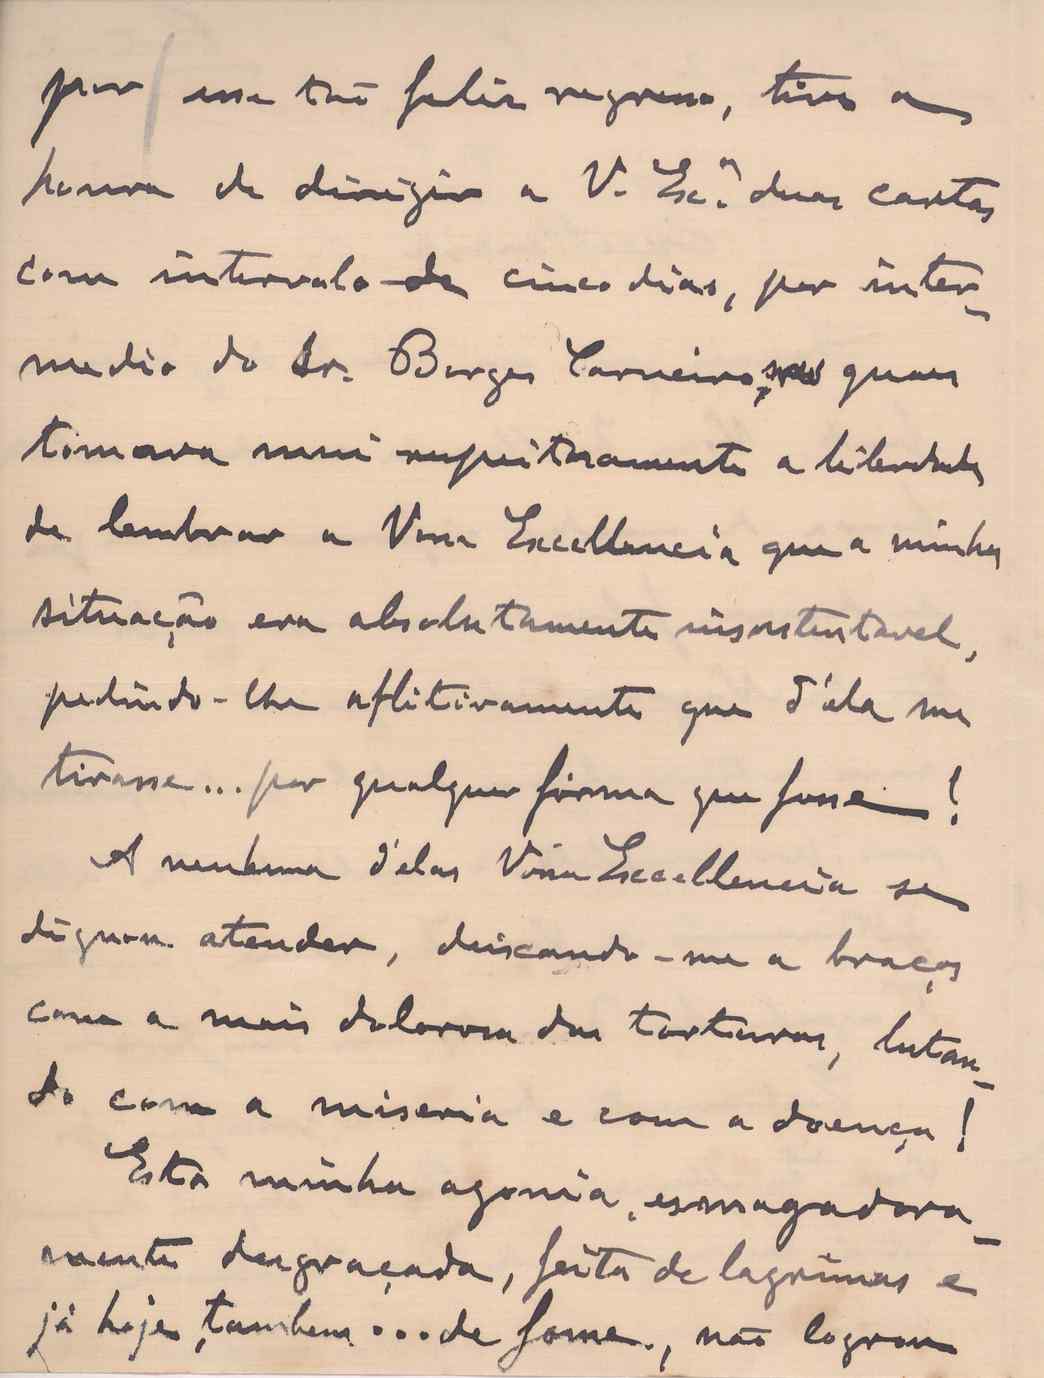 por esse tão feliz regresso, tive a
honra de dirigir a V. Exª. duas cartas
com intervalo de cinco dias, por inter-
medio do Sr. Borges Carneiro, nas quaes
tomava mui respeitosamente a liberdade
de lembrar a Vossa Excellencia que a minha
situação era absolutamente insustentavel,
pedindo-lhe aflitivamente que d'ela me
tirasse... por qualquer fórma que fosse!
A nenhuma d'elas Vossa Excellencia se
dignou atender, deixando-me a braços
com a mais dolorosa das torturas, lutan-
do com a miseria e com a doença!
Esta minha agonia, esmagadora-
mente desgraçada, feita de lagrimas e
já hoje, tambem... de fome, não logrou